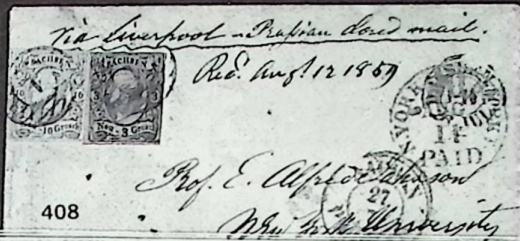 via Liverpool - Prussian closed mail.
Rec. Augt 12 1859
SACHSEN
10 10
Neu-10 Grosch
SACHSEN
3 3
Neu-3 Grosch
PAID
27
Prof. E. Alfred
New York University
408